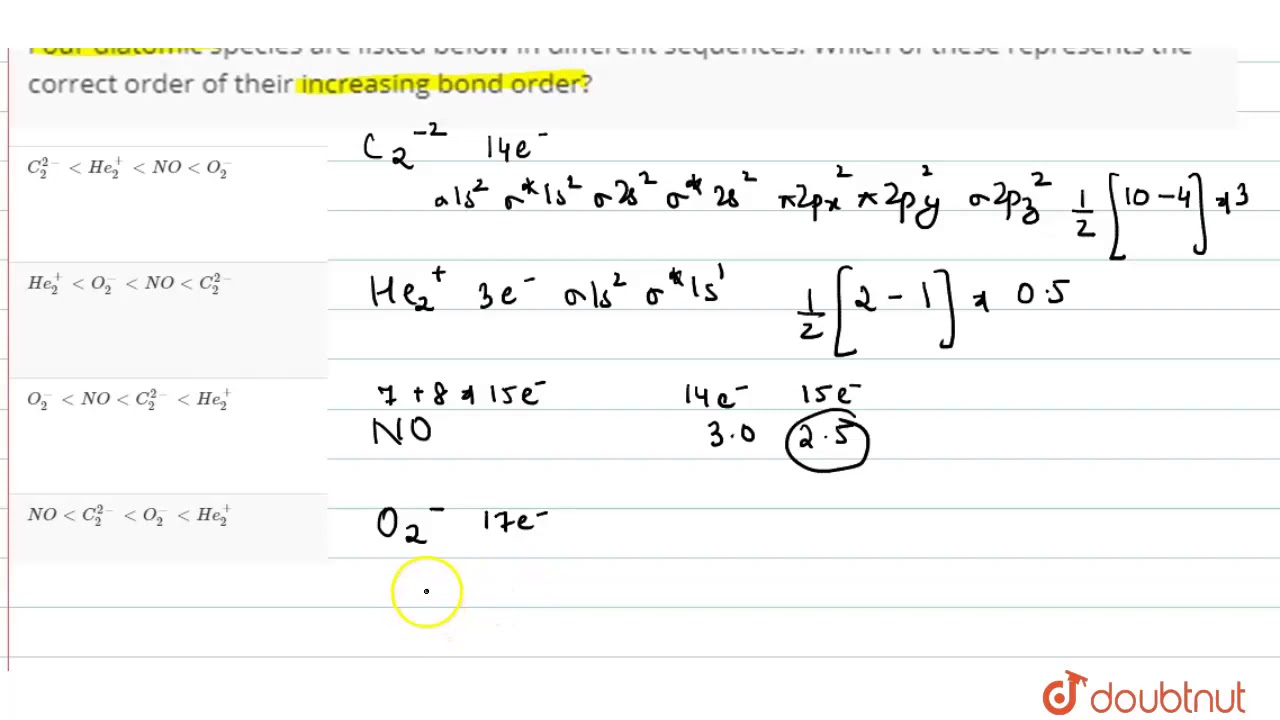 Four diatomic species are listed below in different sequences. Which of these represents the
correct order of their increasing bond order?
C₂²⁻ < He₂⁺ < NO < O₂⁻
He₂⁺ < O₂⁻ < NO < C₂²⁻
O₂⁻ < NO < C₂²⁻ < He₂⁺
NO < C₂²⁻ < O₂⁻ < He₂⁺
C₂⁻² 14e⁻
σ1s² σ*1s² σ2s² σ*2s² π2px² π2py² σ2pz² 1/2 [10 - 4] = 3
He₂⁺ 3e⁻ σ1s² σ*1s¹ 1/2 [2 - 1] = 0.5
7 + 8 = 15e⁻ 14e⁻ 15e⁻
NO 3.0 2.5
O₂⁻ 17e⁻
doubtnut